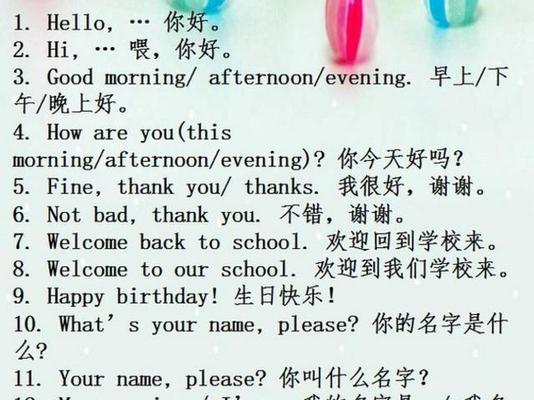 1. Hello, … 你好。
2. Hi, … 喂，你好。
3. Good morning/ afternoon/evening. 早上/下
午/晚上好。
4. How are you(this
morning/afternoon/evening)? 你今天好吗？
5. Fine, thank you/ thanks. 我很好，谢谢。
6. Not bad, thank you. 不错，谢谢。
7. Welcome back to school. 欢迎回到学校来。
8. Welcome to our school. 欢迎到我们学校来。
9. Happy birthday! 生日快乐！
10. What’s your name, please? 你的名字是什
么?
11. Your name, please? 你叫什么名字？